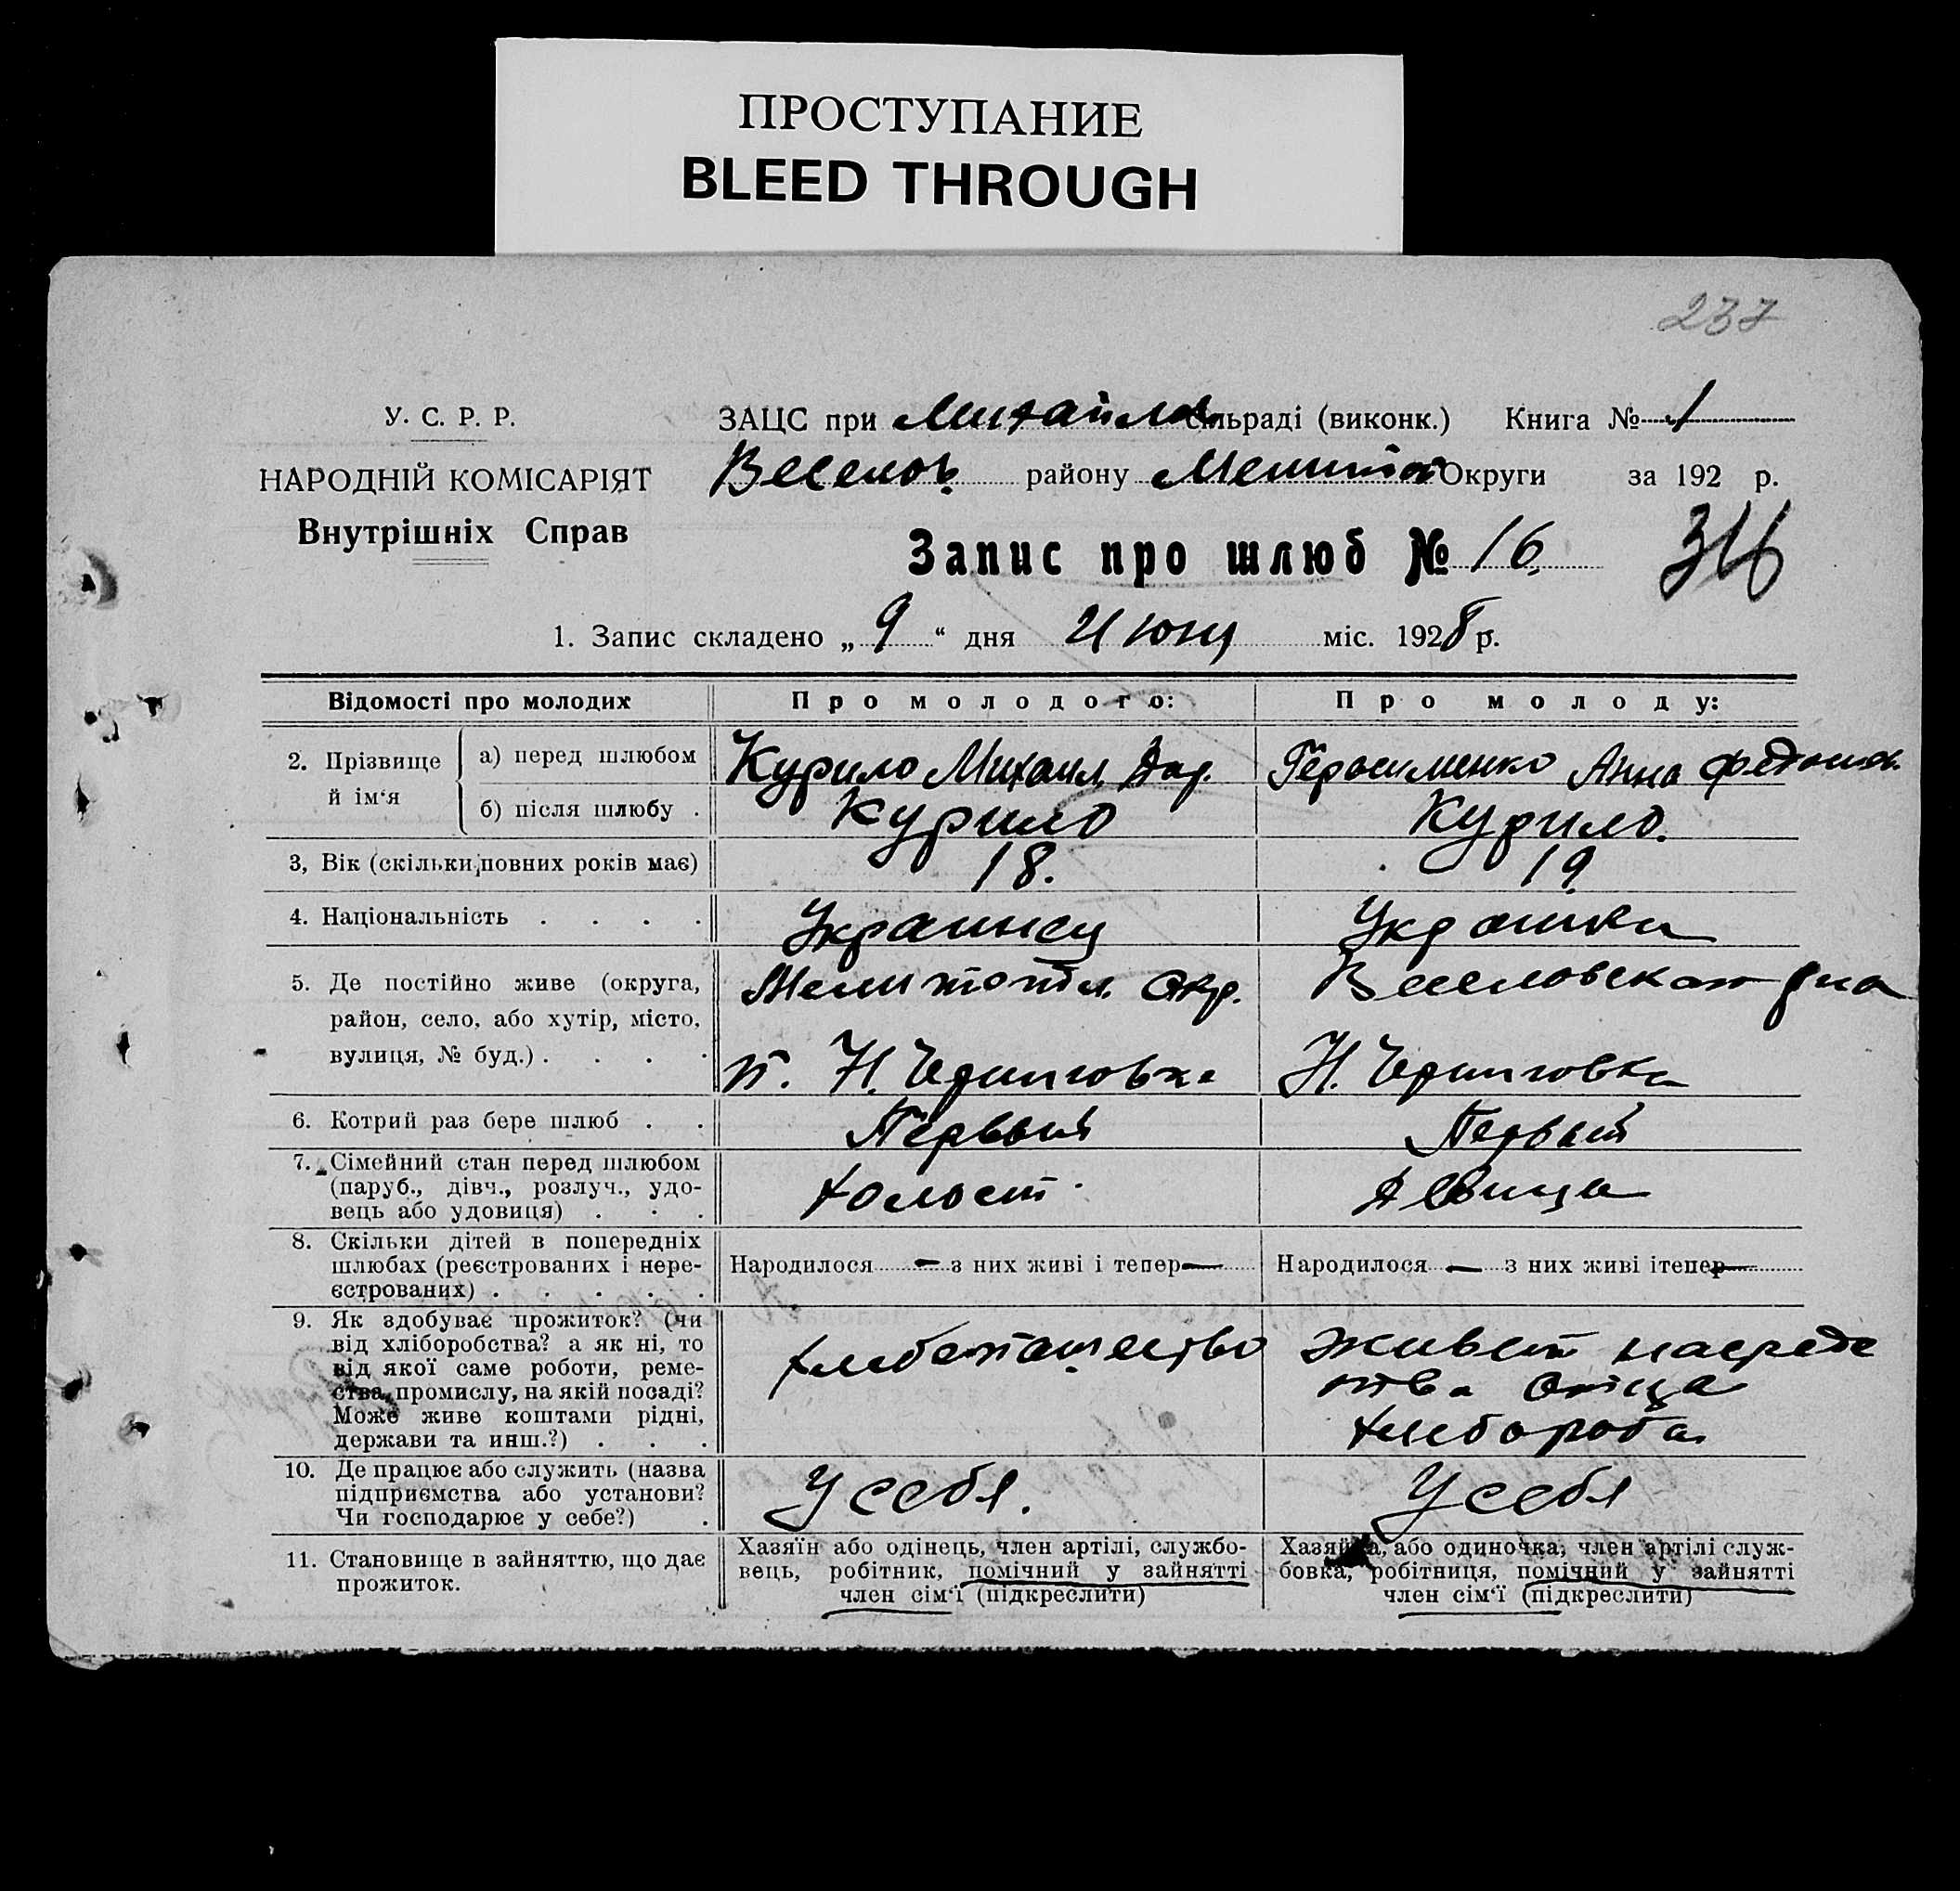 ПРОСТУПАНИЕ
BLEED THROUGH
237
У. С. Р. Р.
НАРОДНІЙ КОМІСАРІЯТ
Внутрішніх Справ
ЗАЦС при Михайлов сільраді (виконк.) Книга № 1
Веселов. району Мелитоп Округи за 192 р.
Запис про шлюб № 16.
316
1. Запис складено „ 9 “ дня Июня міс. 1928 р.
Відомості про молодих Про молодого: Про молоду:
2. Прізвище й ім‘я а) перед шлюбом Курило Михаил Герасименко Анна
б) після шлюбу . Курило Курило.
3, Вік (скільки повних років має) 18. 19
4. Національність . . . . Украинец Украинка
5. Де постійно живе (округа, Мелитопол. Окр. Веселовского рна
район, село, або хутір, місто,
вулиця, № буд.) . . . . Н. Черниговка Н. Черниговка
6. Котрий раз бере шлюб . . Первый Первый
7. Сімейний стан перед шлюбом
(паруб., дівч., розлуч., удо-
вець або удовиця) . . . холост. девица
8. Скільки дітей в попередніх
шлюбах (реєстрованих і нере-
єстрованих) . . . . . Народилося — з них живі і тепер — Народилося — з них живі ітепер —
9. Як здобуває прожиток? (чи
від хліборобства? а як ні, то
від якої саме роботи, реме-
ства, промислу, на якій посаді?
Може живе коштами рідні,
держави та инш.?) . . .
хлебопашество
живет на средс
тва отца
хлебороба
10. Де працює або служить (назва
підприємства або установи?
Чи господарює у себе?) . У себя. У себя
11. Становище в зайняттю, що дає
прожиток.
Хазяїн або одінець, член артілі, службо-
вець, робітник, помічний у зайнятті
член сім‘ї (підкреслити)
Хазяйка, або одиночка, член артілі служ-
бовка, робітниця, помічний у зайнятті
член сім‘ї (підкреслити)